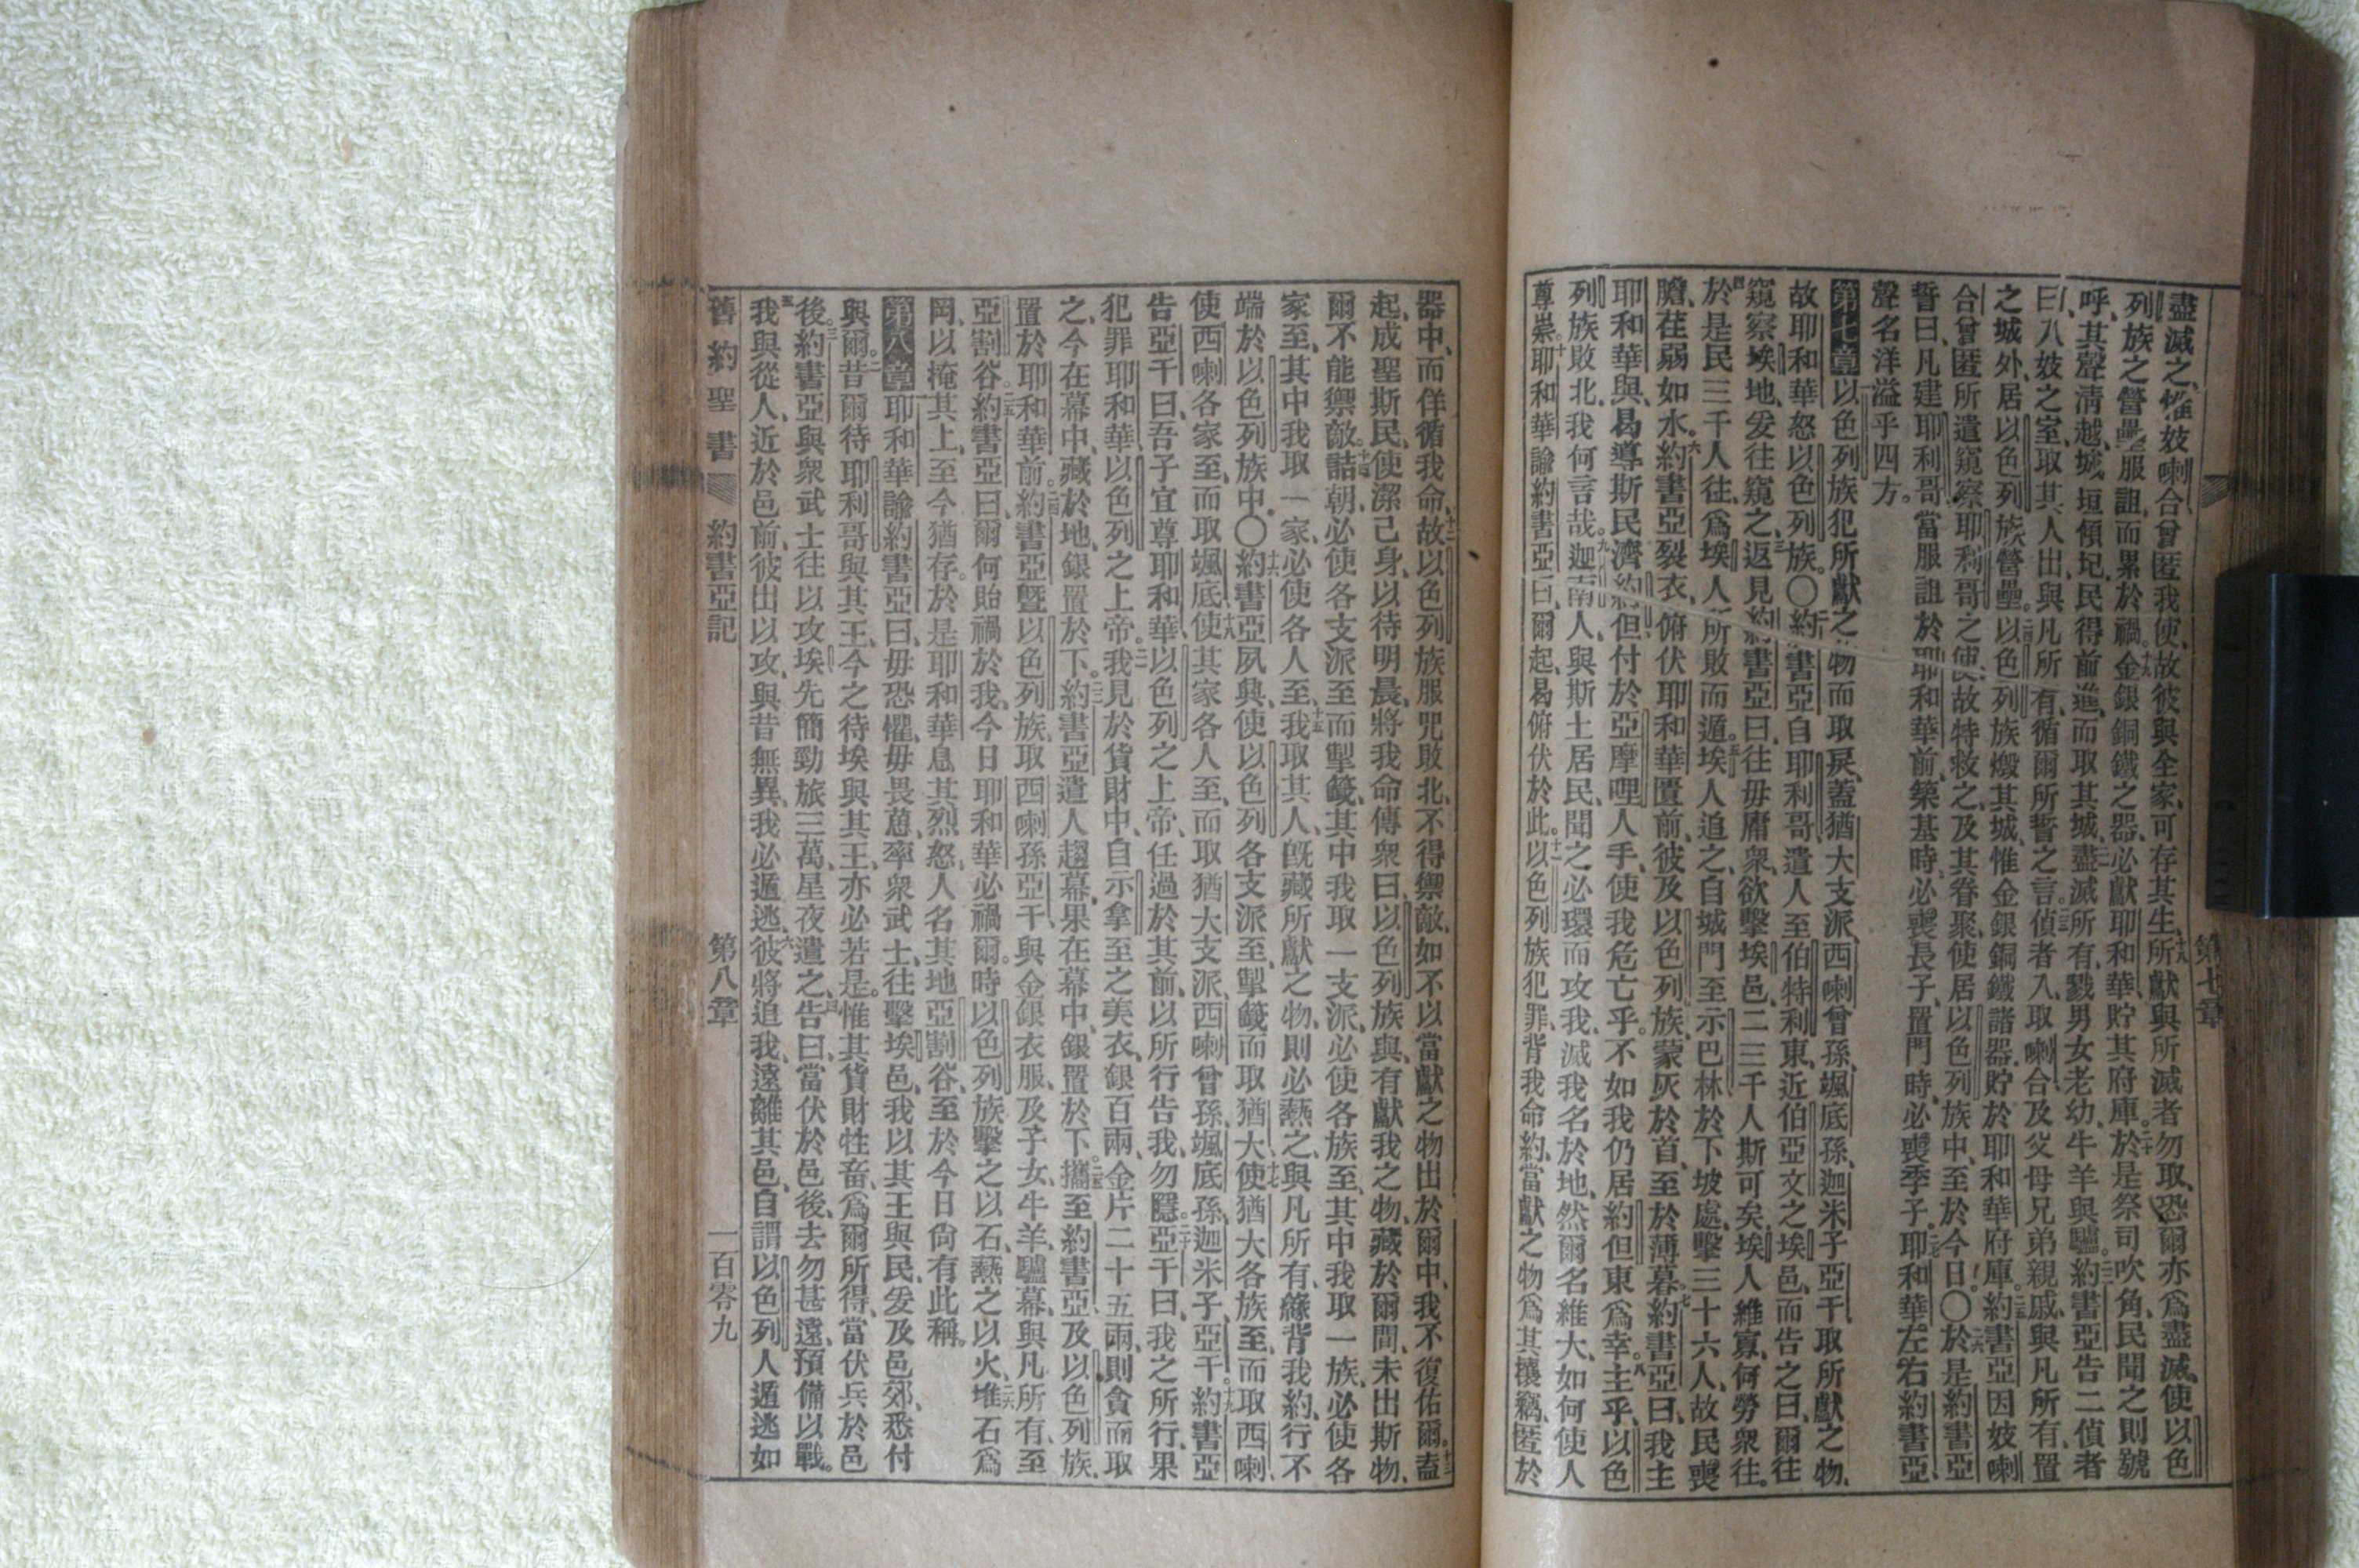 盡滅之、惟妓喇合曾匿我使、故彼與全家、可存其生、十八所獻與所滅者勿取、恐爾亦爲盡滅、使以色
列族之營壘服詛、而累於禍。十九金銀銅鐵之器、必獻耶和華、貯其府庫。二十於是祭司吹角、民聞之則號
呼、其聲清越、城垣傾圮、民得前進、而取其城、二一盡滅所有、戮男女老幼、牛羊與驢。二二約書亞告二偵者
曰、入妓之室、取其人出、與凡所有、循爾所誓之言。二三偵者入、取喇合及父母兄弟親戚、與凡所有、置
之城外、居以色列族營壘。二四以色列族燬其城、惟金銀銅鐵諸器、貯於耶和華府庫。二五約書亞因妓喇
合曾匿所遣窺察耶利哥之使、故特救之、及其眷聚、使居以色列族中、至於今日。〇二六於是約書亞
誓曰、凡建耶利哥、當服詛於耶和華前、築基時、必喪長子、置門時、必喪季子。二七耶和華左右約書亞、
聲名洋溢乎四方。
第七章 一以色列族犯所獻之物而取戾、蓋猶大支派、西喇曾孫、颯底孫、迦米子、亞干取所獻之物、
故耶和華怒以色列族。〇二約書亞自耶利哥、遣人至伯特利東、近伯亞文之埃邑、而告之曰、爾往
窺察埃地、爰往窺之、三返見約書亞曰、往毋庸衆、欲擊埃邑、二三千人斯可矣、埃人維寡、何勞衆往。
四於是民三千人往、爲埃人所敗而遁。五埃人追之、自城門至示巴林、於下坡處、擊三十六人、故民喪
膽、荏弱如水。六約書亞裂衣、俯伏耶和華匱前、彼及以色列族、蒙灰於首、至於薄暮。七約書亞曰、我主
耶和華與、曷導斯民濟約但、付於亞摩哩人手、使我危亡乎。不如我仍居約但東爲幸。八主乎、以色
列族敗北、我何言哉。九迦南人、與斯土居民、聞之必環而攻我、滅我名於地、然爾名維大、如何使人
尊崇。十耶和華諭約書亞曰、爾起、曷俯伏於此。十一以色列族犯罪、背我命約、當獻之物、爲其攘竊、匿於
器中、而佯循我命、十二故以色列族服咒敗北、不得禦敵、如不以當獻之物、出於爾中、我不復佑爾。十三盍
起、成聖斯民、使潔己身、以待明晨、將我命傳衆曰、以色列族與、有獻我之物、藏於爾間、未出斯物、
爾不能禦敵。十四詰朝、必使各支派至、而掣籤、其中我取一支派、必使各族至、其中我取一族、必使各
家至、其中我取一家、必使各人至、十五我取其人、旣藏所獻之物、則必爇之、與凡所有、緣背我約、行不
端於以色列族中。〇十六約書亞夙興、使以色列各支派至、掣籤而取猶大、十七使猶大各族至、而取西喇、
使西喇各家至、而取颯底、十八使其家各人至、而取猶大支派、西喇曾孫、颯底孫、迦米子、亞干。十九約書亞
告亞干曰、吾子宜尊耶和華、以色列之上帝、任過於其前、以所行告我、勿隱。二十亞干曰、我之所行、果
犯罪耶和華、以色列之上帝。二一我見於貨財中、自示拿至之美衣、銀百兩、金片二十五兩、則貪而取
之、今在幕中、藏於地、銀置於下。二二約書亞遣人趨幕、果在幕中、銀置於下。二三攜至約書亞、及以色列族、
置於耶和華前。二四約書亞曁以色列族、取西喇孫亞干、與金銀衣服、及子女牛羊驢幕、與凡所有、至
亞割谷。二五約書亞曰、爾何貽禍於我、今日耶和華必禍爾。時以色列族擊之以石、爇之以火、二六堆石爲
岡、以掩其上、至今猶存。於是耶和華息其烈怒、人名其地亞割谷、至於今日、尙有此稱。
第八章 一耶和華諭約書亞曰、毋恐懼、毋畏葸、率衆武士、往擊埃邑、我以其王與民、爰及邑郊、悉付
與爾。二昔爾待耶利哥與其王、今之待埃與其王、亦必若是。惟其貨財牲畜、爲爾所得、當伏兵於邑
後。三約書亞與衆武士往以攻埃、先簡勁旅三萬、星夜遣之、四告曰、當伏於邑後、去勿甚遠、預備以戰。
五我與從人、近於邑前、彼出以攻、與昔無異、我必遁逃、六彼將追我、遠離其邑、自謂以色列人遁逃如
舊約聖書 約書亞記 第八章 一百零九
第七章